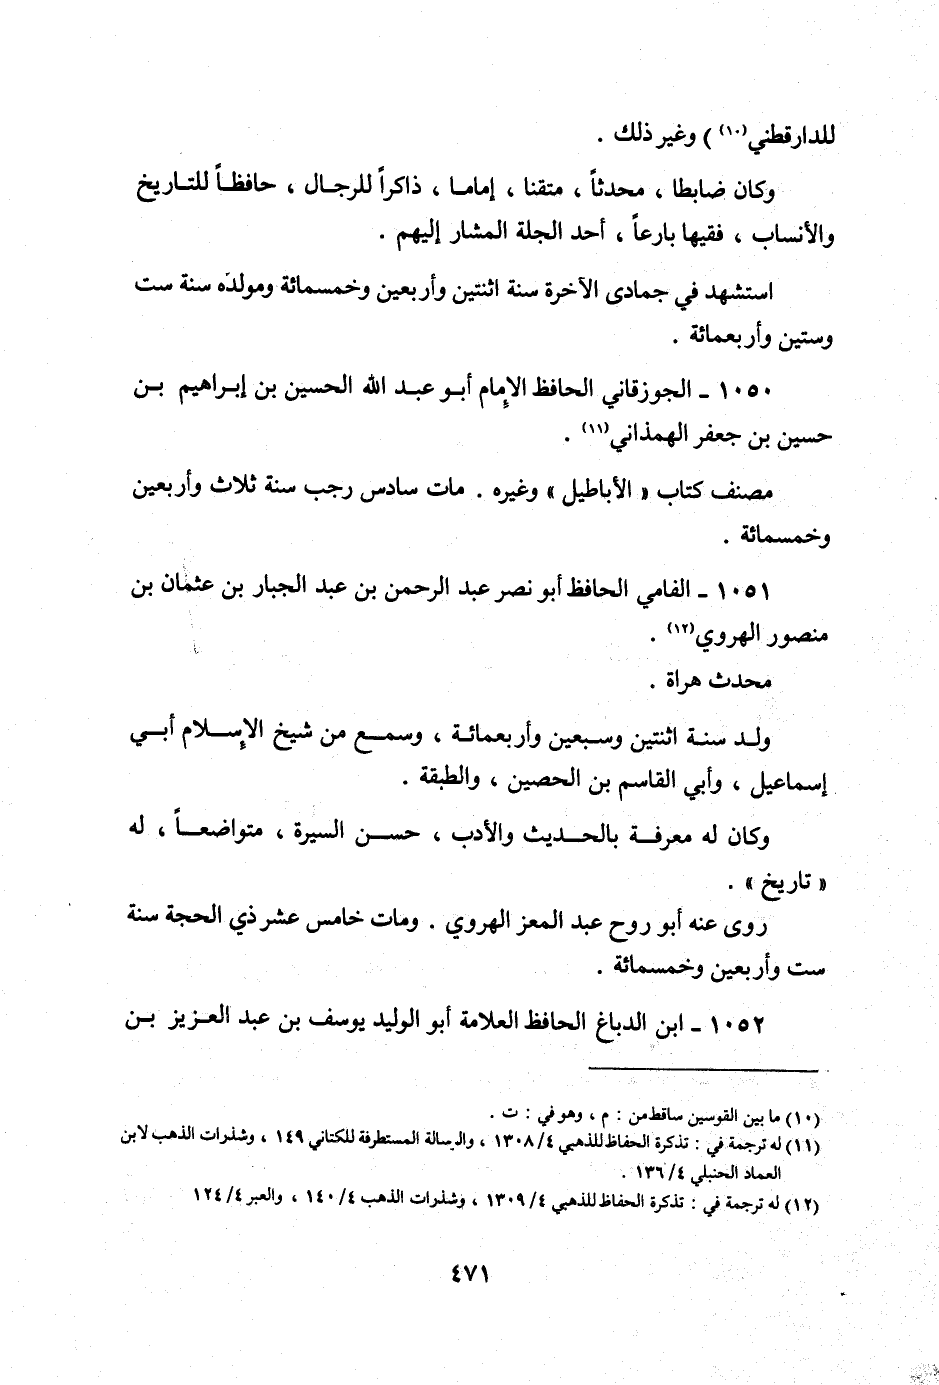 للدارقطني(١٠) ) وغير ذلك .
وكان ضابطا ، محدثاً ، متقنا ، إماما ، ذاكراً للرجال ، حافظاً للتاريخ
والأنساب ، فقيها بارعاً ، أحد الجلة المشار إليهم .
استشهد في جمادى الآخرة سنة اثنتين وأربعين وخمسمائة ومولده سنة ست
وستين وأربعمائة .
١٠٥٠ ـ الجوزقاني الحافظ الإمام أبو عبد الله الحسين بن إبراهيم بن
حسين بن جعفر الهمذاني(١١) .
مصنف كتاب « الأباطيل » وغيره . مات سادس رجب سنة ثلاث وأربعين
وخمسمائة .
١٠٥١ ـ الفامي الحافظ أبو نصر عبد الرحمن بن عبد الجبار بن عثمان بن
منصور الهروي(١٢) .
محدث هراة .
ولد سنة اثنتين وسبعين وأربعمائة ، وسمع من شيخ الإسلام أبي
إسماعيل ، وأبي القاسم بن الحصين ، والطبقة .
وكان له معرفة بالحديث والأدب ، حسن السيرة ، متواضعاً ، له
« تاريخ » .
روى عنه أبو روح عبد المعز الهروي . ومات خامس عشر ذي الحجة سنة
ست وأربعين وخمسمائة .
١٠٥٢ ـ ابن الدباغ الحافظ العلامة أبو الوليد يوسف بن عبد العزيز بن
(١٠) ما بين القوسين ساقط من : م ، وهو في : ت .
(١١) له ترجمة في : تذكرة الحفاظ للذهبي ٤/ ١٣٠٨ ، والرسالة المستطرفة للكتاني ١٤٩ ، وشذرات الذهب لابن
العماد الحنبلي ٤/ ١٣٦ .
(١٢) له ترجمة في : تذكرة الحفاظ للذهبي ٤/ ١٣٠٩ ، وشذرات الذهب ٤/ ١٤٠ ، والعبر ٤/ ١٢٤
٤٧١